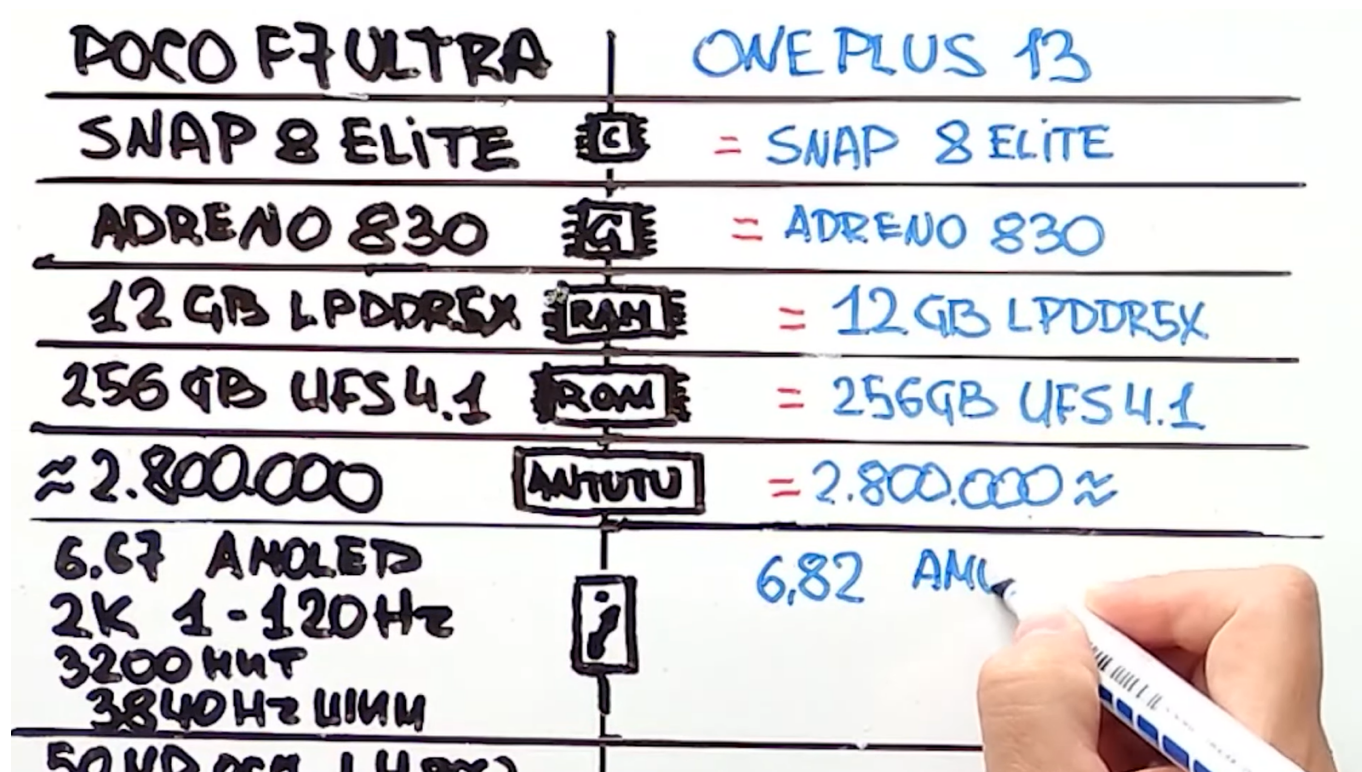 POCO F7 ULTRA ONE PLUS 13
SNAP 8 ELiTE C = SNAP 8 ELiTE
ADRENO 830 G = ADRENO 830
12 GB LPDDR5X RAM = 12 GB LPDDR5X
256 GB UFS 4.1 ROM = 256GB UFS 4.1
≈ 2.800.000 ANTUTU = 2.800.000 ≈
6.67 AMOLED 6,82 AMO
2K 1-120Hz
3200 нит
3840Hz ШИМ